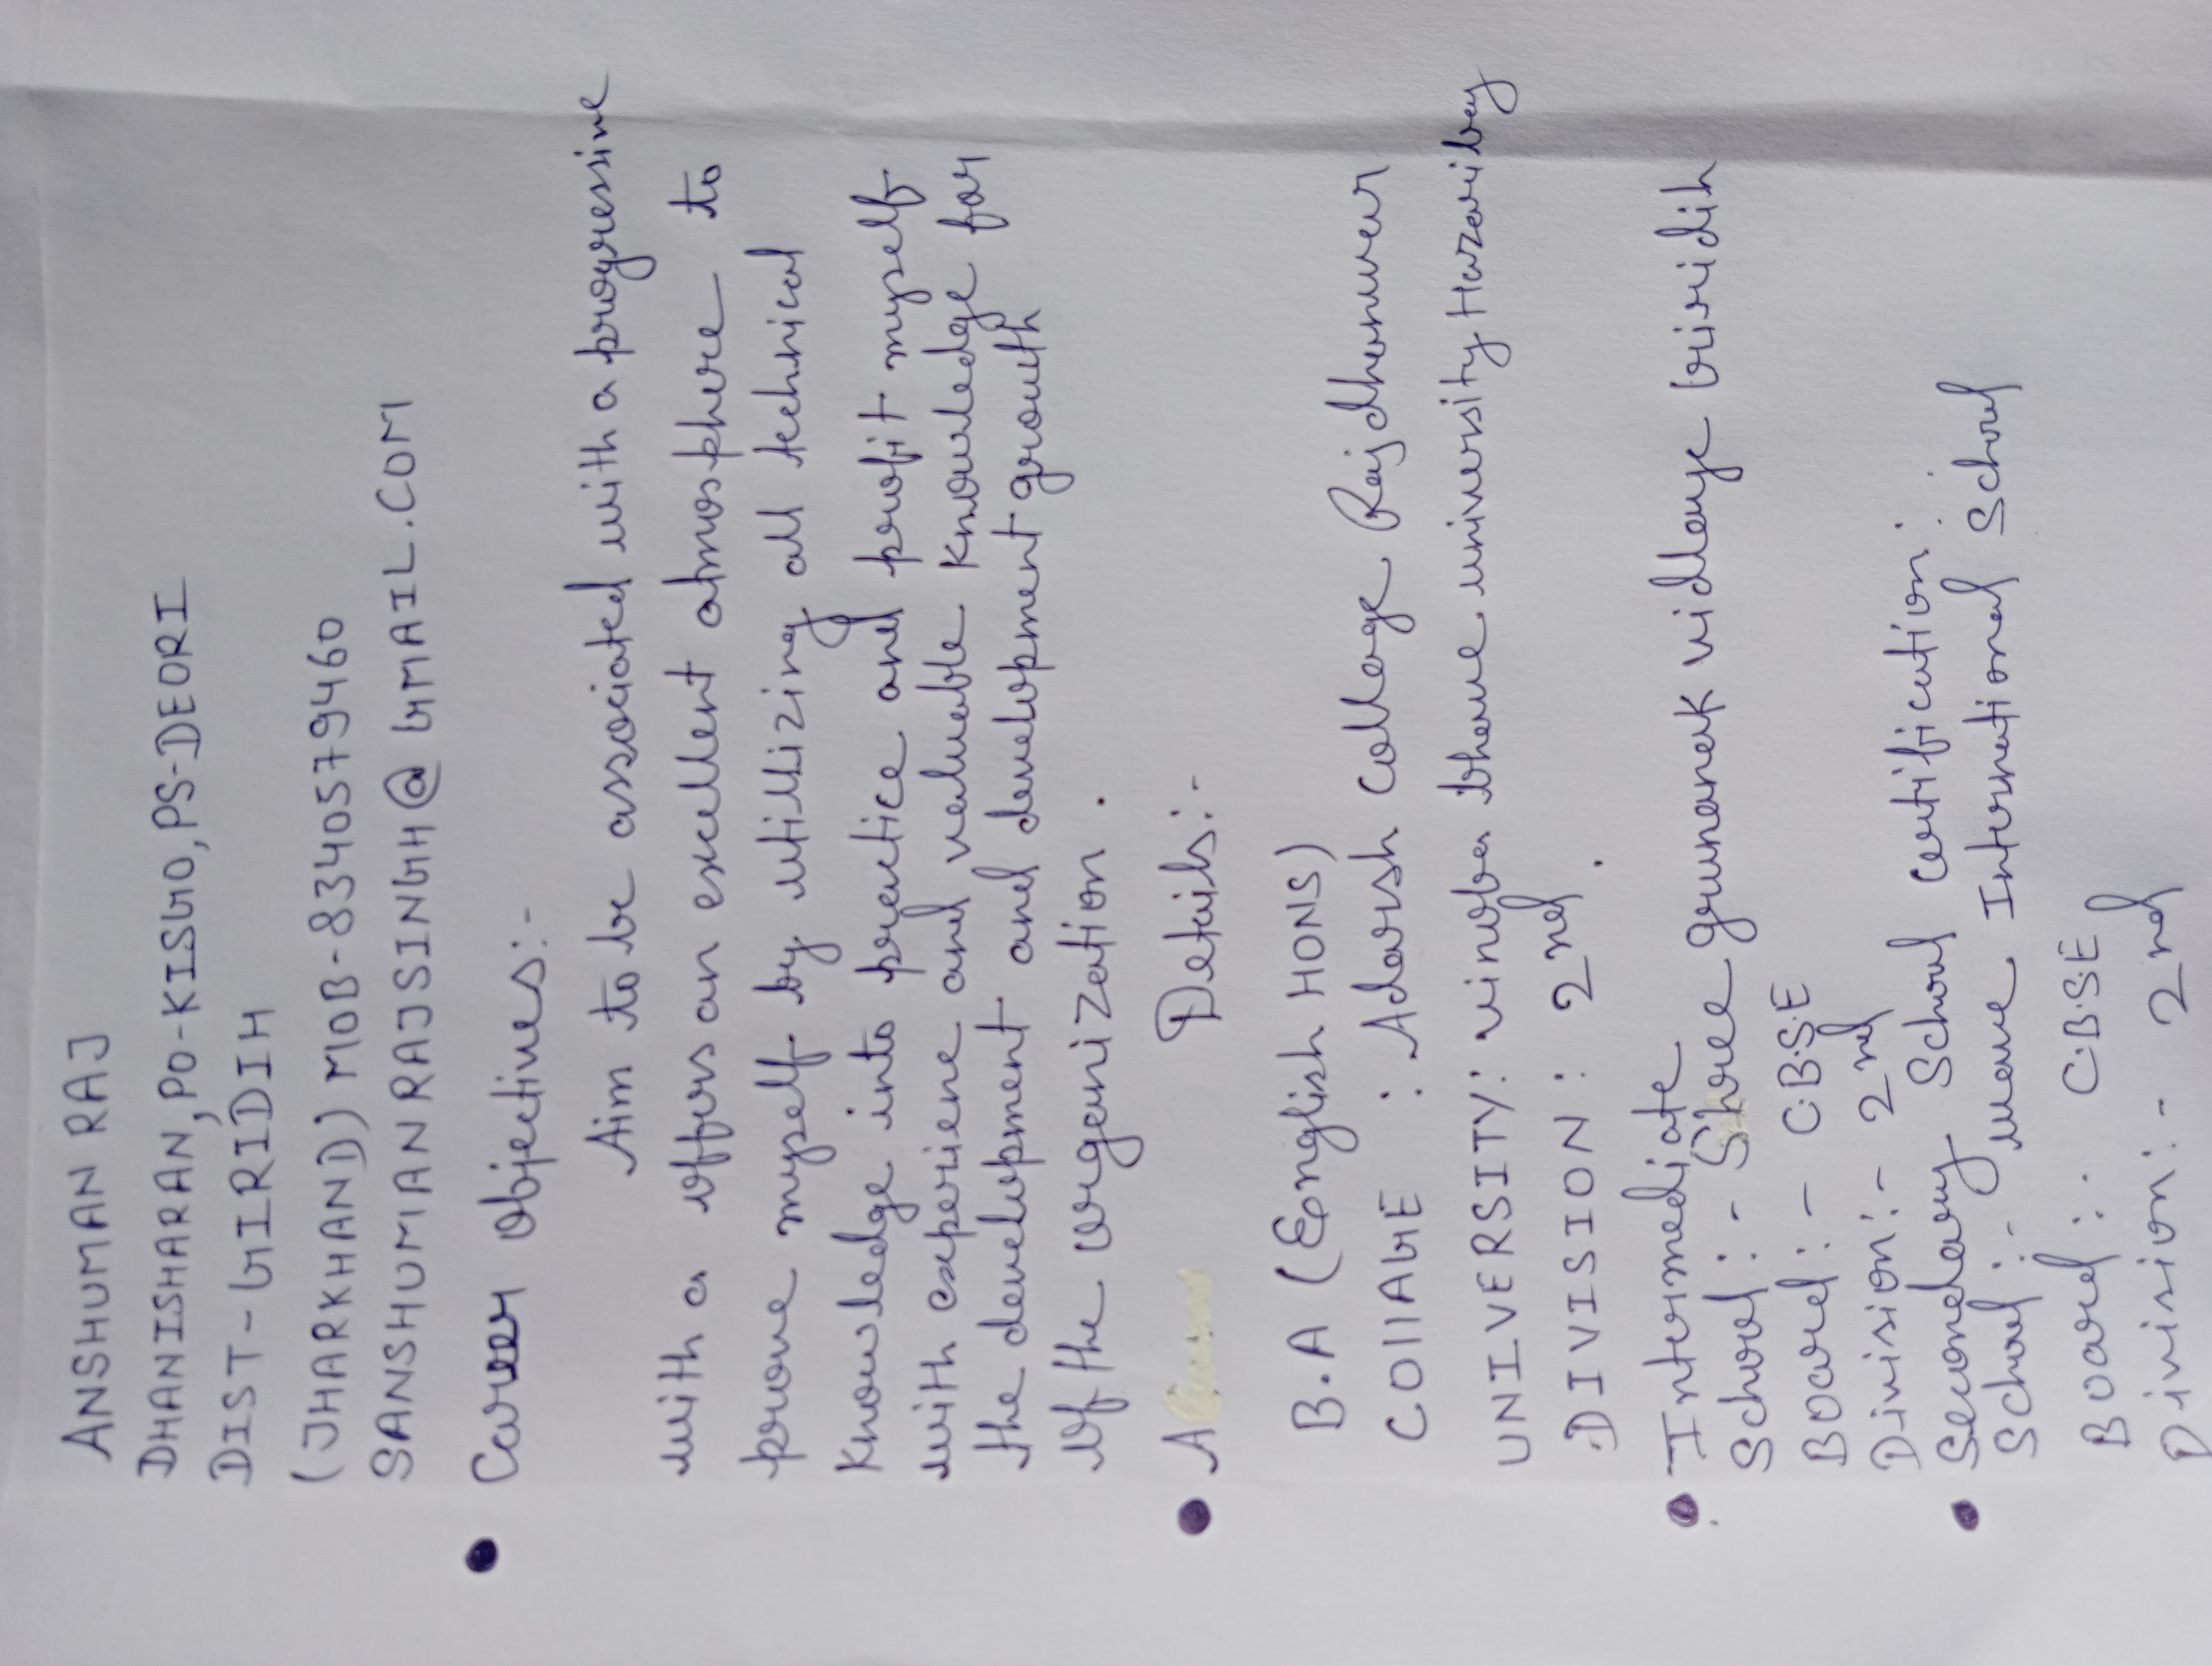 ANSHUMAN RAJ
DHANISHARAN, PO-KISGO, PS-DEORI
DIST-GIRIDIH
(JHARKHAND) MOB-8340579460
SANSHUMANRAJSINGH@GMAIL.COM
Career objectives:-
Aim to be associated with a progressive
with a offers an excellent atmosphere to
prove myself by utillizing all technical
Knowledge into practice and profit myself
with experiene and valuable knowledge for
the development and development grouth
of the organization.
A Details:-
B.A (English HONS)
COllAGE : Adarsh collage Rajdhanwar
UNIVERSITY: vinoba bhave university Hazaribag
DIVISION : 2nd.
Intermediate
School :- Shree grunanak vidhaye giridih
Board :- C.B.S.E
Division:- 2nd
Secondary School certification:
School :- wave International School
Board :- C.B.S.E
Division:- 2nd